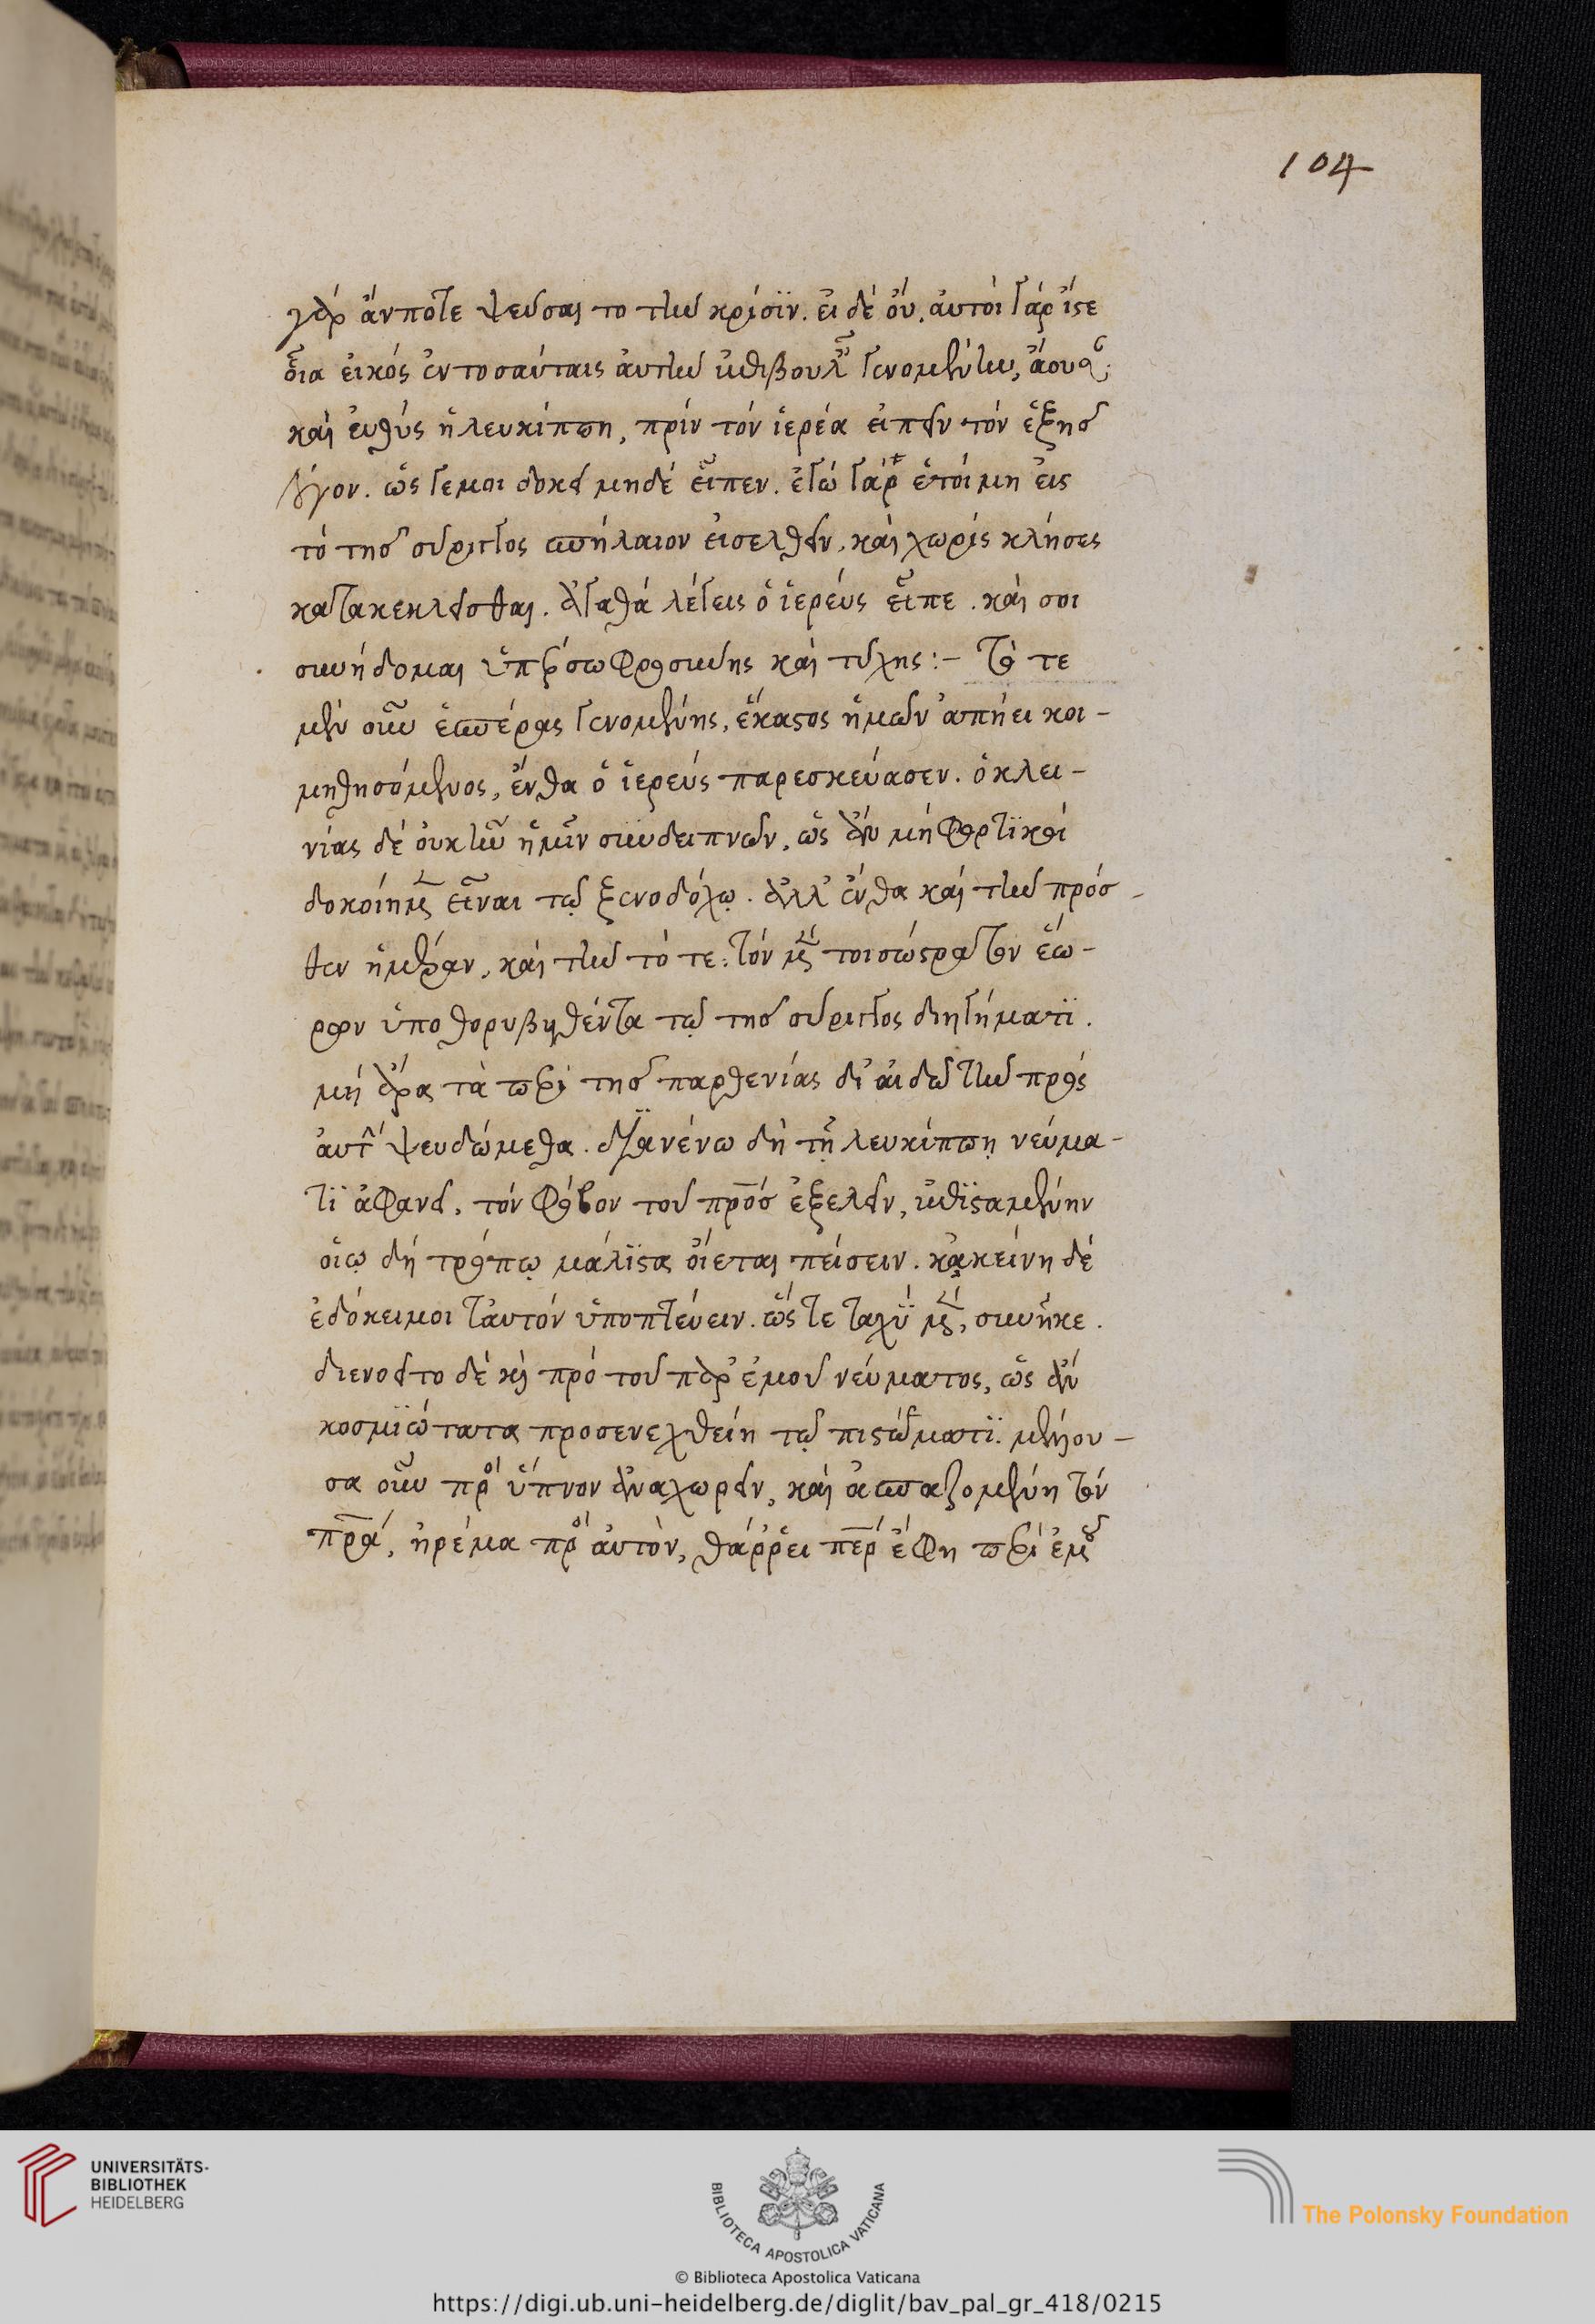 104
γὰρ ἄν ποτε ψεύσαιτο τὴν κρίσϊν. εἰ δὲ οὐ, αὐτοὶ γὰρ ἴστε
οἷα εἰκὸς ἐν τοσαύταις αὐτὴν ἐπιβουλαῖς γενομένην, ἄκουσαν;
καὶ εὐθὺς ἡ λευκίππη, πρὶν τὸν ἱερέα εἰπεῖν τὸν ἑξῆς
λόγον. ὥς γέ μοι δοκεῖ μηδὲ εἴπῃς. ἐγὼ γὰρ ἑτοίμη εἰς
τὸ τῆς σύριγγος σπήλαιον εἰσελθεῖν, καὶ χωρὶς κλήσεως
κατακεκλεῖσθαι. ἀγαθὰ λέγεις ὁ ἱερεὺς εἶπε. καί σοι
συνήδομαι ὑπὲρ σωφροσύνης καὶ τύχης :- τό τε
μὲν οὖν ἑσπέρας γενομένης, ἕκαστος ἡμῶν ἀπῄει κοι-
μηθησόμενος, ἔνθα ὁ ἱερεὺς παρεσκεύασεν. ὁ κλει-
νίας δὲ οὐκ ἦν ἡμῖν συνδειπνῶν, ὡς ἂν μὴ φορτϊκοὶ
δοκοίημεν εἶναι τῷ ξενοδόχῳ. ἀλλ' ἔνθα καὶ τὴν πρόσ-
θεν ἡμέραν, καὶ τὴν τό τε. τὸν μέν τοι σώστρατον ἑώ-
ρων ὑποθορυβηθέντα τῷ τῆς σύριγγος διηγήματϊ.
μὴ ἄρα τὰ περὶ τῆς παρθενίας δι' αἰδῶ τὴν πρὸς
αὐτὸν ψευδώμεθα. διανένω δὴ τῇ λευκίππῃ νεύμα-
τϊ ἀφανεῖ, τὸν φόβον τοῦ πρσ ἐξελεῖν, ἐπϊσταμένην
οἵῳ δὴ τρόπῳ μάλϊστα οἴεται πείσειν. κἀκείνη δὲ
ἐδόκει μοι ταὐτὸν ὑποπτεύειν. ὥστε ταχύ μου, συνῆκε.
διενοεῖτο δὲ καὶ πρὸ τοῦ παρ' ἐμοῦ νεύματος, ὡς ἂν
κοσμϊώτατα προσενεχθείη τῷ πιστώματϊ. μέλλου-
σα οὖν πρὸς ὕπνον ἀναχωρεῖν, καὶ ἀσπαζομένη τὸν
πρα, ἠρέμα πρὸς αὐτὸν, θάρρει περ ἔφη περὶ ἐμοῦ
UNIVERSITÄTS-
BIBLIOTHEK
HEIDELBERG
BIBLIOTECA APOSTOLICA VATICANA
The Polonsky Foundation
© Biblioteca Apostolica Vaticana
https://digi.ub.uni-heidelberg.de/diglit/bav_pal_gr_418/0215